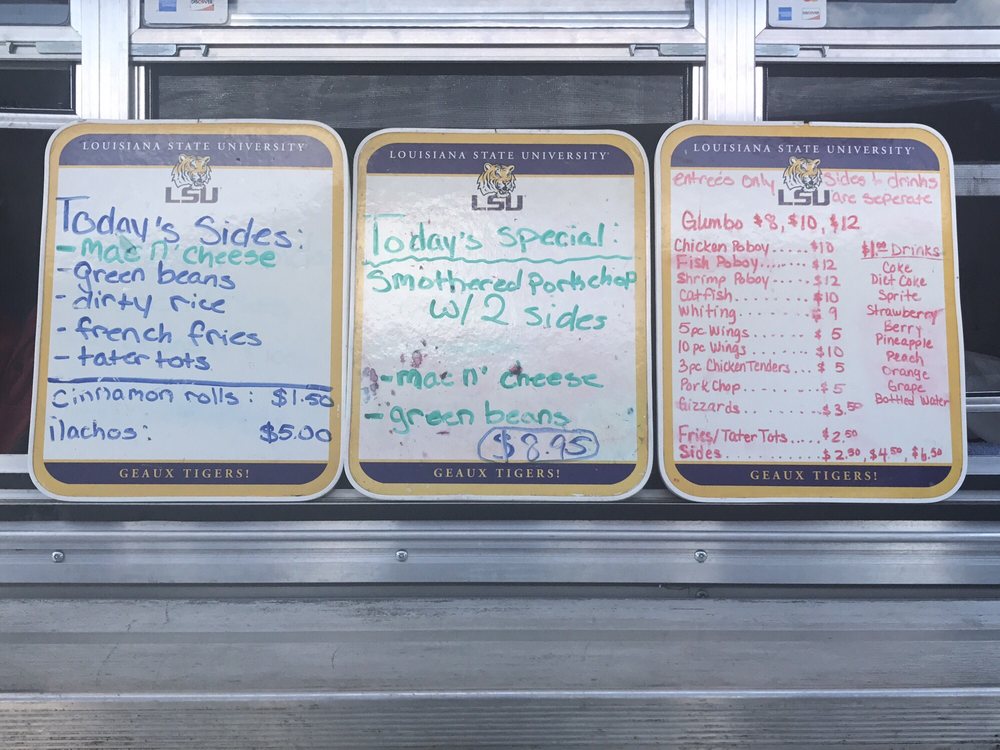 DISCOVER
DISCOVER
LOUISIANA STATE UNIVERSITY
LSU
Today's Sides:
- mac n' cheese
- green beans
- dirty rice
- french fries
- tater tots
Cinnamon rolls: $1.50
nachos: $5.00
GEAUX TIGERS!
LOUISIANA STATE UNIVERSITY
LSU
Today's special:
Smothered Porkchop
w/ 2 sides
- mac n' cheese
- green beans
$8.95
GEAUX TIGERS!
LOUISIANA STATE UNIVERSITY
LSU
entreés only Sides & drinks
are seperate
Gumbo $8, $10, $12
Chicken Poboy..... $10
Fish Poboy....... $12
Shrimp Poboy..... $12
Catfish.......... $10
Whiting.......... $9
5pc Wings........ $5
10 pc Wings....... $10
3pc Chicken Tenders... $5
Pork Chop........ $5
Gizzards......... $3.50
Fries/Tater Tots..... $2.50
Sides............ $2.50, $4.50, $6.50
$1.00 Drinks
Coke
Diet Coke
Sprite
Strawberry
Berry
Pineapple
Peach
Orange
Grape
Bottled Water
GEAUX TIGERS!